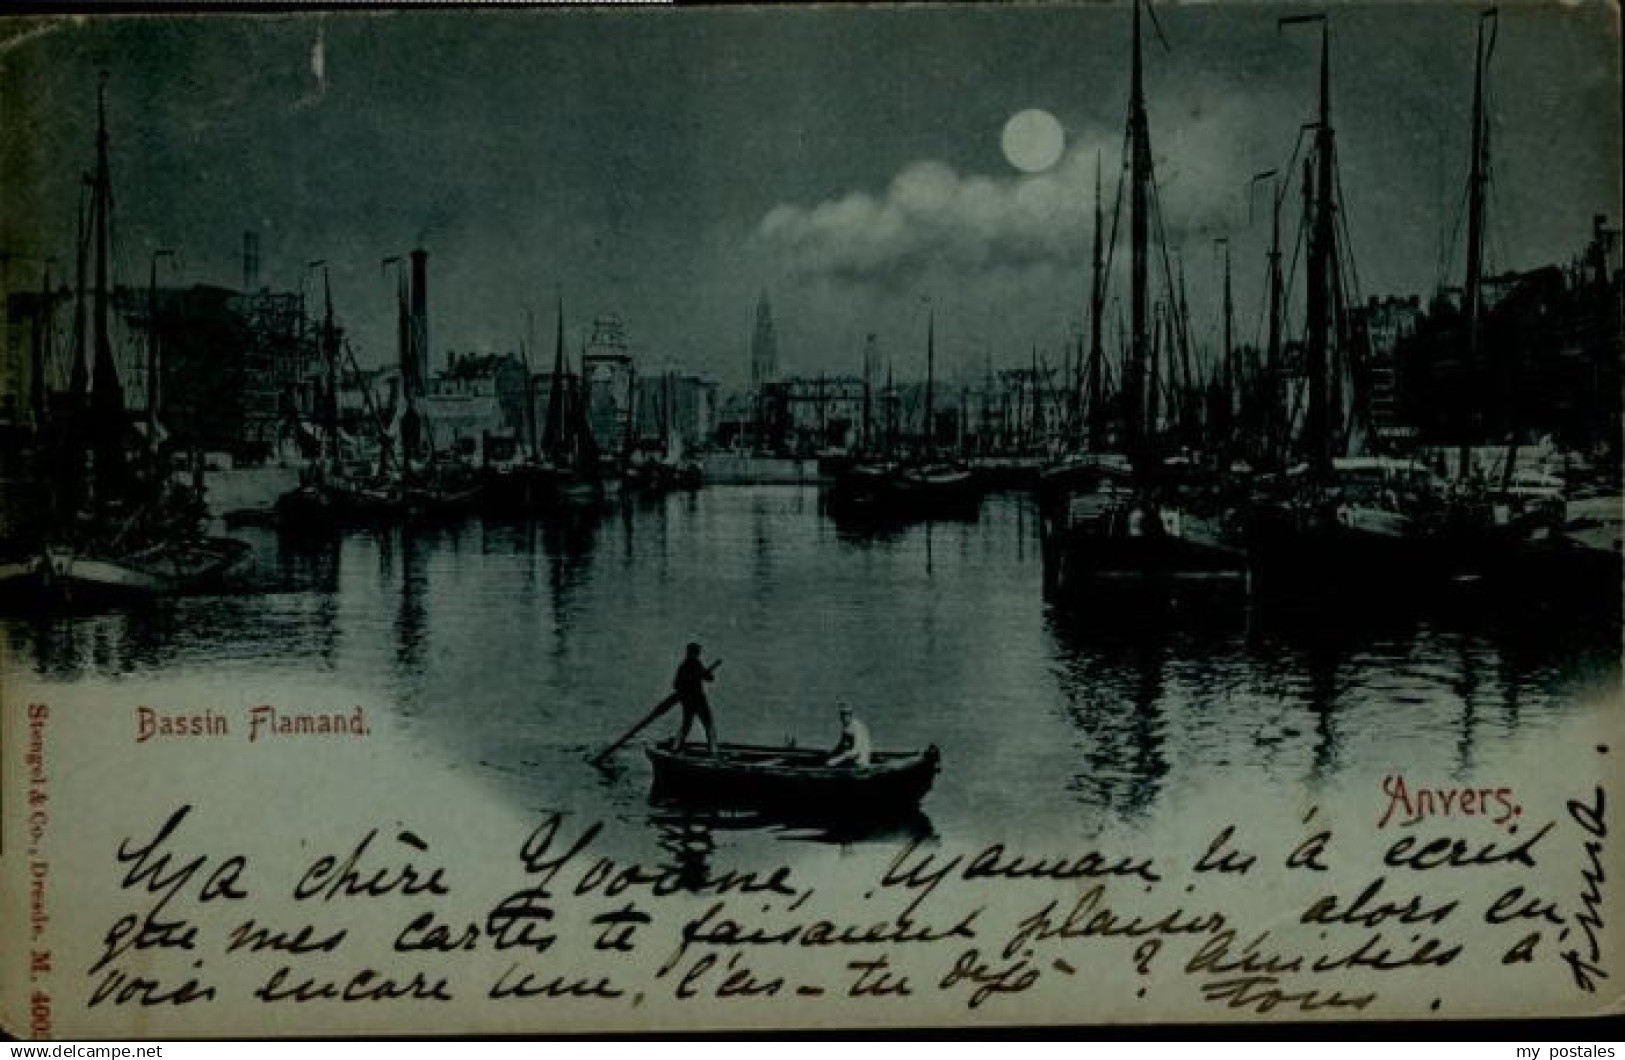 Bassin Flamand.
Anvers.
Stengel & Co., Dresde. M. 400
Ma chère Yvonne, Maman lui a écrit
que mes cartes te faisaient plaisir, alors en
voici encore une, l'as-tu déjà ? Amitiés à
tous.
my postales